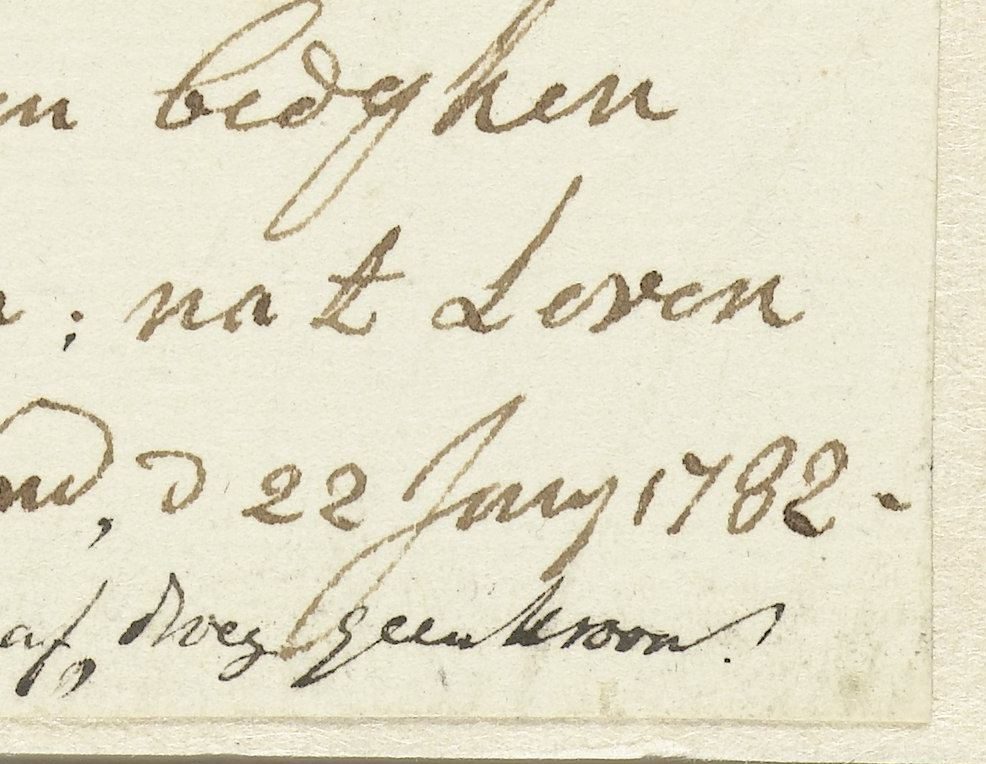 en bedghen
; na t Leven
nd, d 22 Jany 1782 -
af, droeg geen kroon.